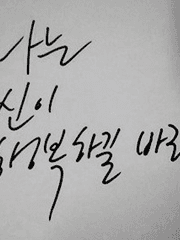 나는
신이
행복하길 바라